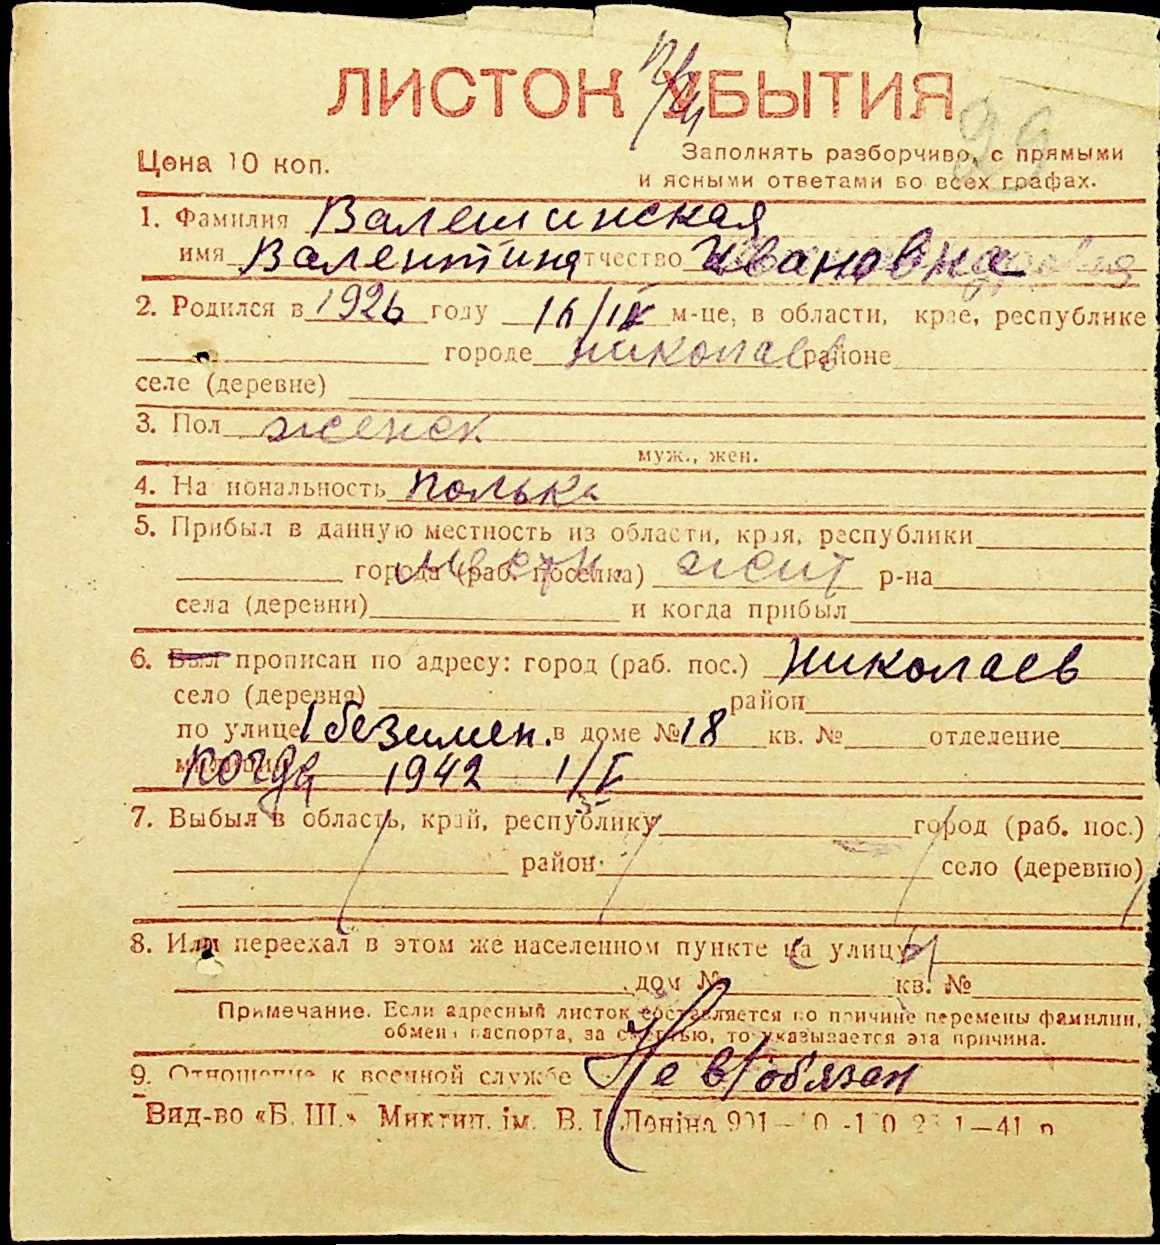 ЛИСТОК УБЫТИЯ
29
Цена 10 коп.
Заполнять разборчиво, с прямыми
и ясными ответами во всех графах.
1. Фамилия Валешинская
имя Валентина отчество Ивановна
2. Родился в 1926 году 16/IX м-це, в области, крае, республике
городе Николаев районе
селе (деревне)
3. Пол женск
муж., жен.
4. Национальность полька
5. Прибыл в данную местность из области, края, республики
города (раб. поселка) местн. жит р-на
села (деревни) и когда прибыл
6. Был прописан по адресу: город (раб. пос.) Николаев
село (деревня) район
по улице 1 безимен. в доме № 18 кв. № отделение
когда 1942 1/V
7. Выбыл в область, край, республику город (раб. пос.)
район село (деревню)
8. Или переехал в этом же населенном пункте на улицу
дом № кв. №
Примечание. Если адресный листок составляется по причине перемены фамилии,
обмена паспорта, за смертью, то указывается эта причина.
9. Отношение к военной службе Не в/обязан
Вид-во «Б. Ш.» Миктип. ім. В. І. Леніна